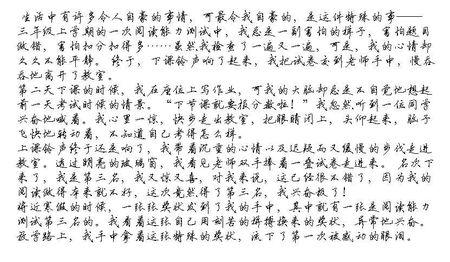 生活中有许多令人自豪的事情，可最令我自豪的，是这件特殊的事——
三年级上学期的一次阅读能力测试中，我总是一副害怕的样子，害怕题目
做错，害怕扣分扣得多……虽然我检查了一遍又一遍，可是，我的心情却
久久不能平静。终于，下课铃声响了起来，我把试卷交到老师手中，慢吞
吞地离开了教室。
第二天下课的时候，我在座位上写作业，可我的大脑却总是不自觉地想起
前一天考试时候的情景。“下节课就要报分数啦！”我忽然听到一位同学
兴奋地喊着。我心里一惊，快步走出教室，把眼睛闭上，头仰起来，脑子
飞快地转动着，不知道自己考得怎么样。
上课铃声终于还是响了，我带着沉重的心情以及迟疑而又缓慢的步伐走进
教室。透过明亮的玻璃窗，我看见老师双手捧着一叠试卷走进来。名次下
来了，我是第三名，我又惊又喜，对我来说，这已经很不错了，因为我的
阅读做得本来就不好，这次竟然得了第三名，我兴奋极了！
将近寒假的时候，一张张奖状发到了我的手中，其中就有一张是阅读能力
测试第三名的。我看着这张自己用刻苦的拼搏换来的奖状，异常地兴奋。
放学路上，我手中拿着这张特殊的奖状，流下了第一次被感动的眼泪。